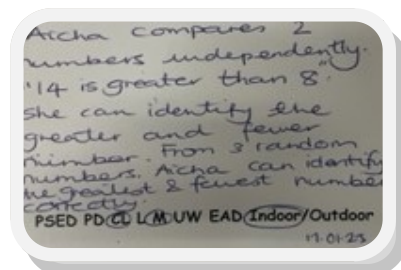 Aicha compares 2
numbers independently.
"14 is greater than 8".
she can identify the
greater and fewer
number. From 3 random
numbers. Aicha can identify
the greatest & fewest number
correctly.
PSED PD CL L M UW EAD Indoor/Outdoor
17.01.23